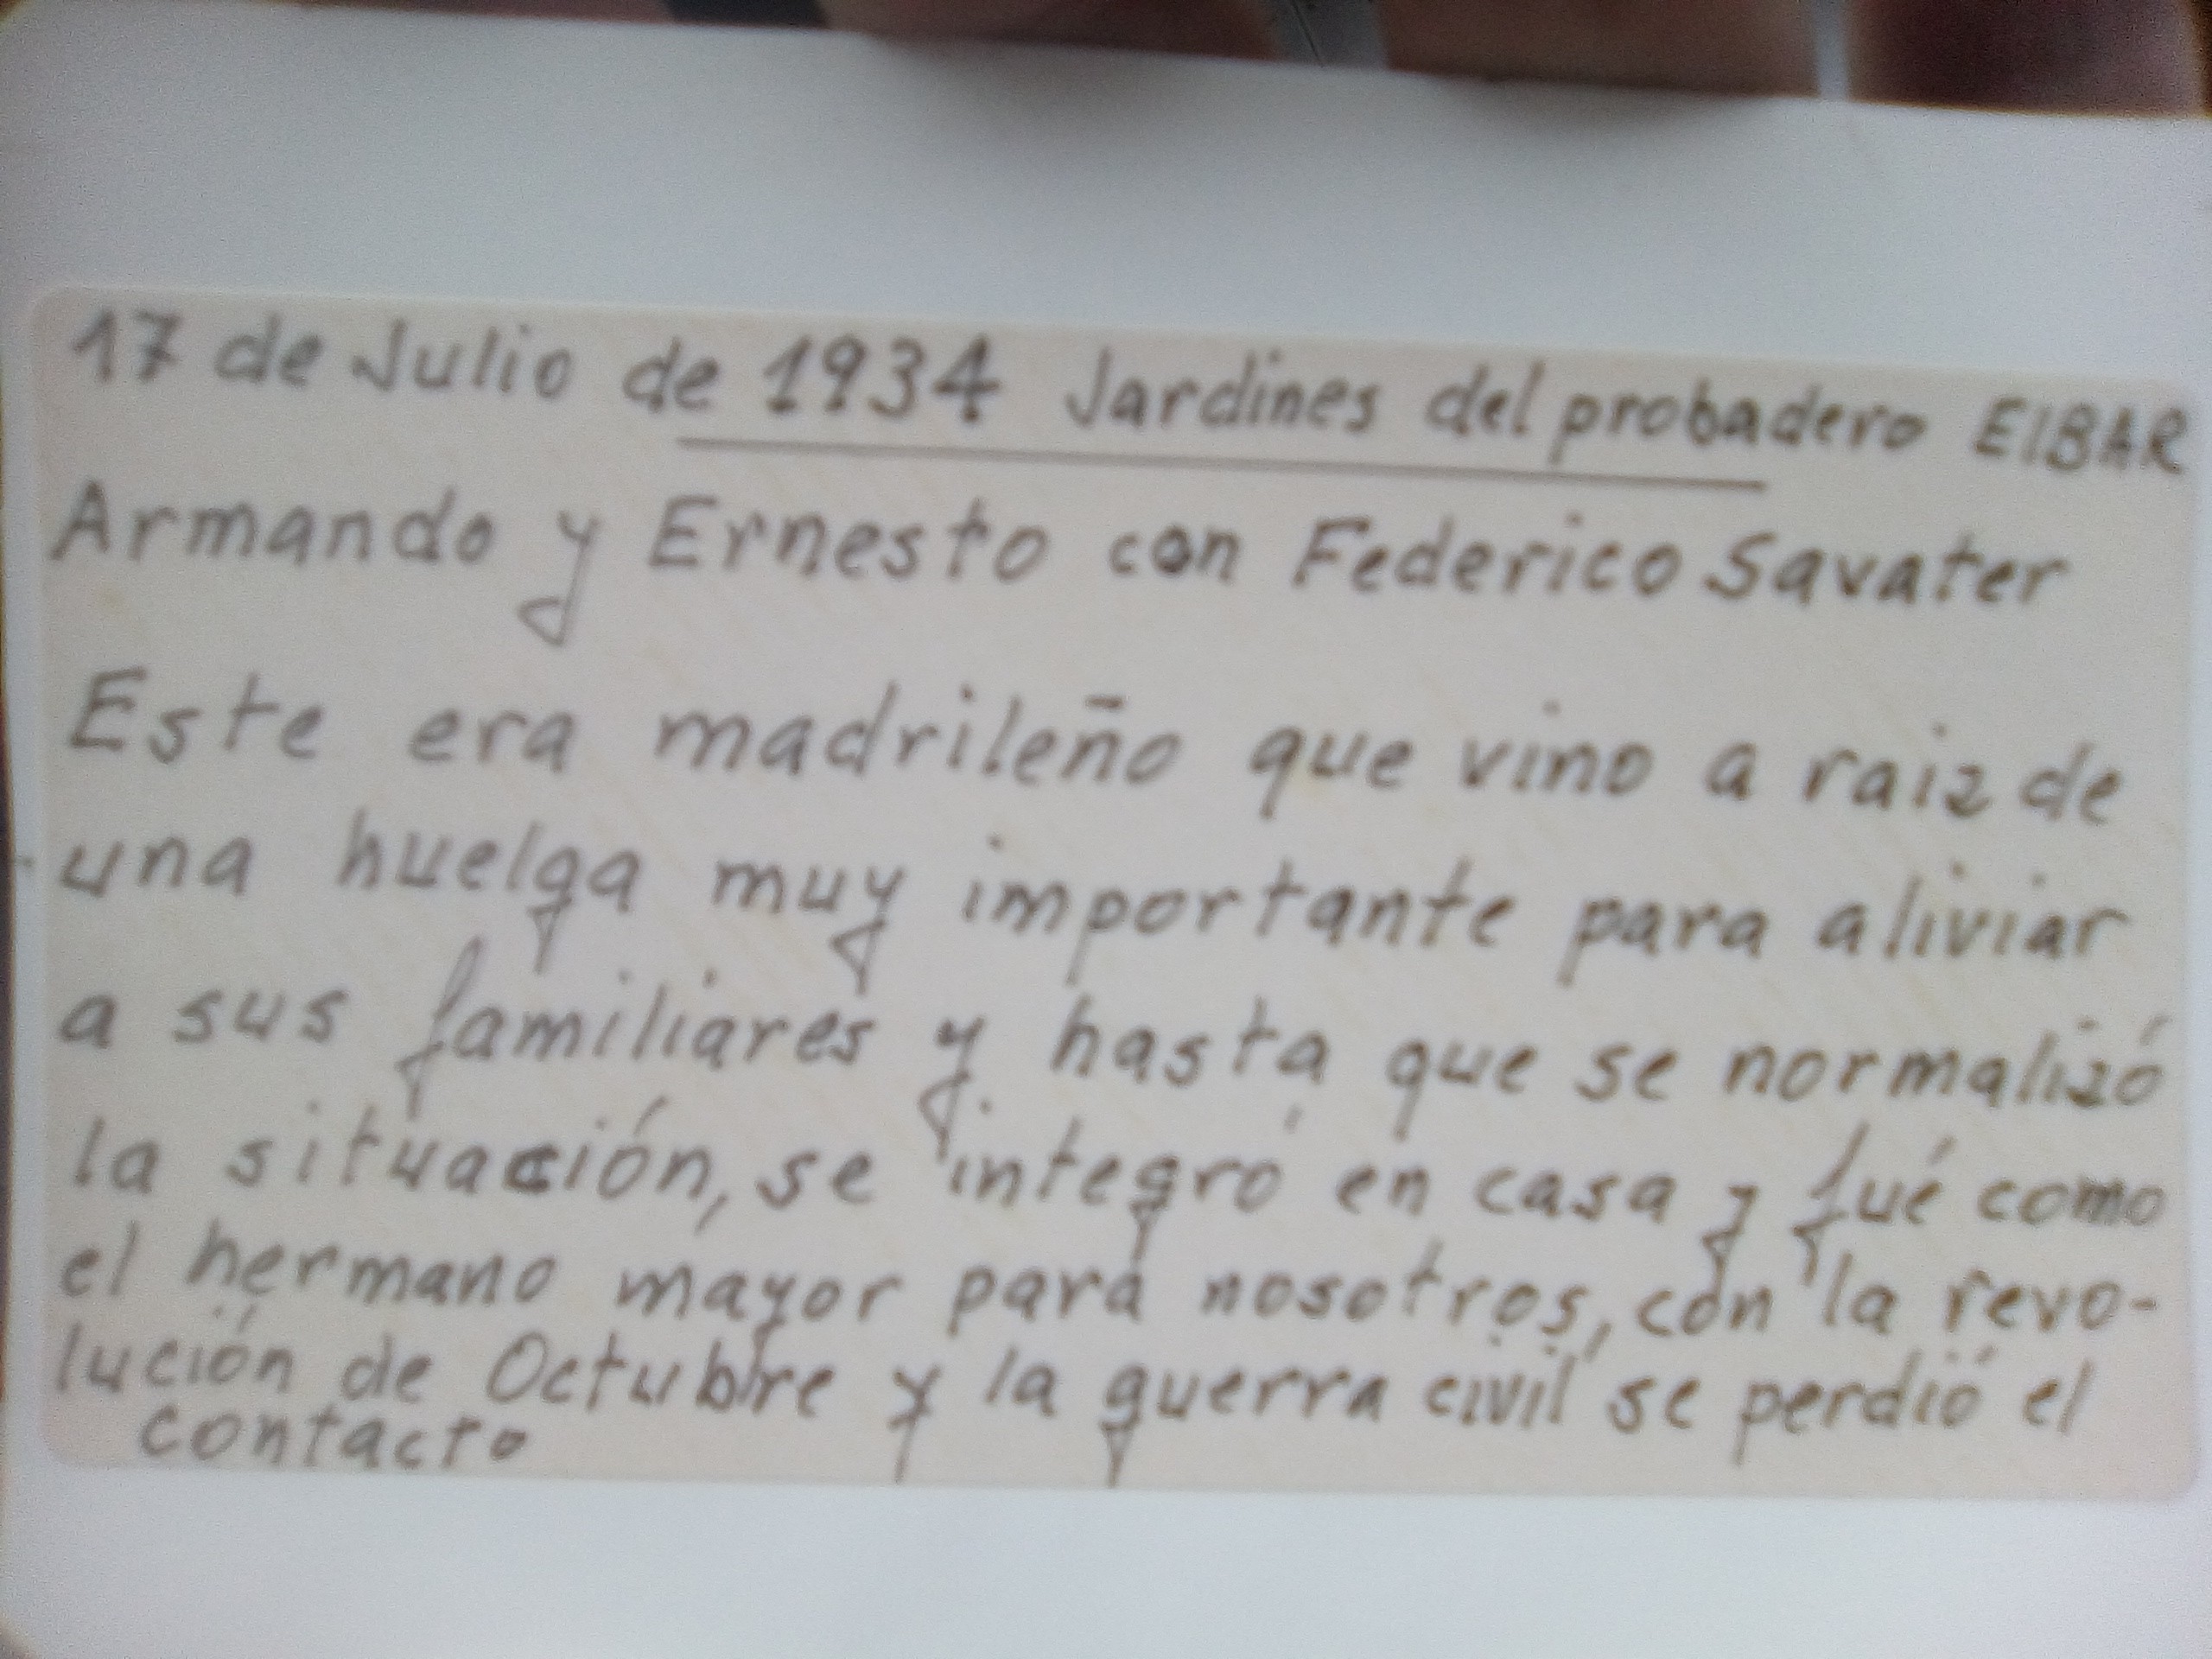 17 de Julio de 1934 Jardines del probadero EIBAR
Armando y Ernesto con Federico Savater
Este era madrileño que vino a raiz de
una huelga muy importante para aliviar
a sus familiares y hasta que se normalizó
la situación, se integró en casa y fué como
el hermano mayor para nosotros, con la revo-
lución de Octubre y la guerra civil se perdió el
contacto